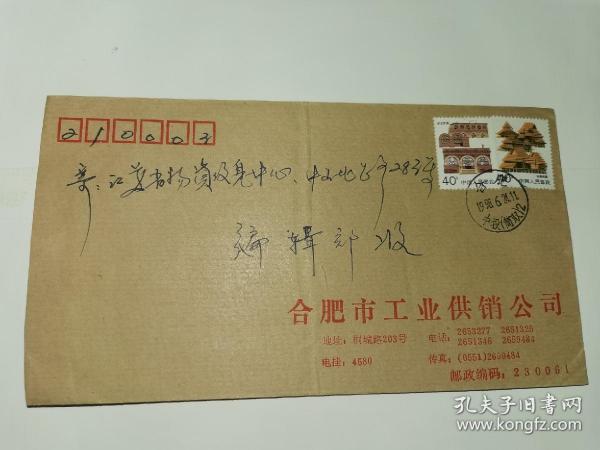 210003
寄：江苏省物资信息中心、中山北路283号
编辑部 收
40 中国人民邮政
中国人民邮政
1998.6.
合肥市工业供销公司
地址：桐城路203号 电话：2653277 2651325
2651346 2659484
电挂：4580 传真：(0551)2659484
邮政编码：230061
孔夫子旧书网
www.kongfz.com